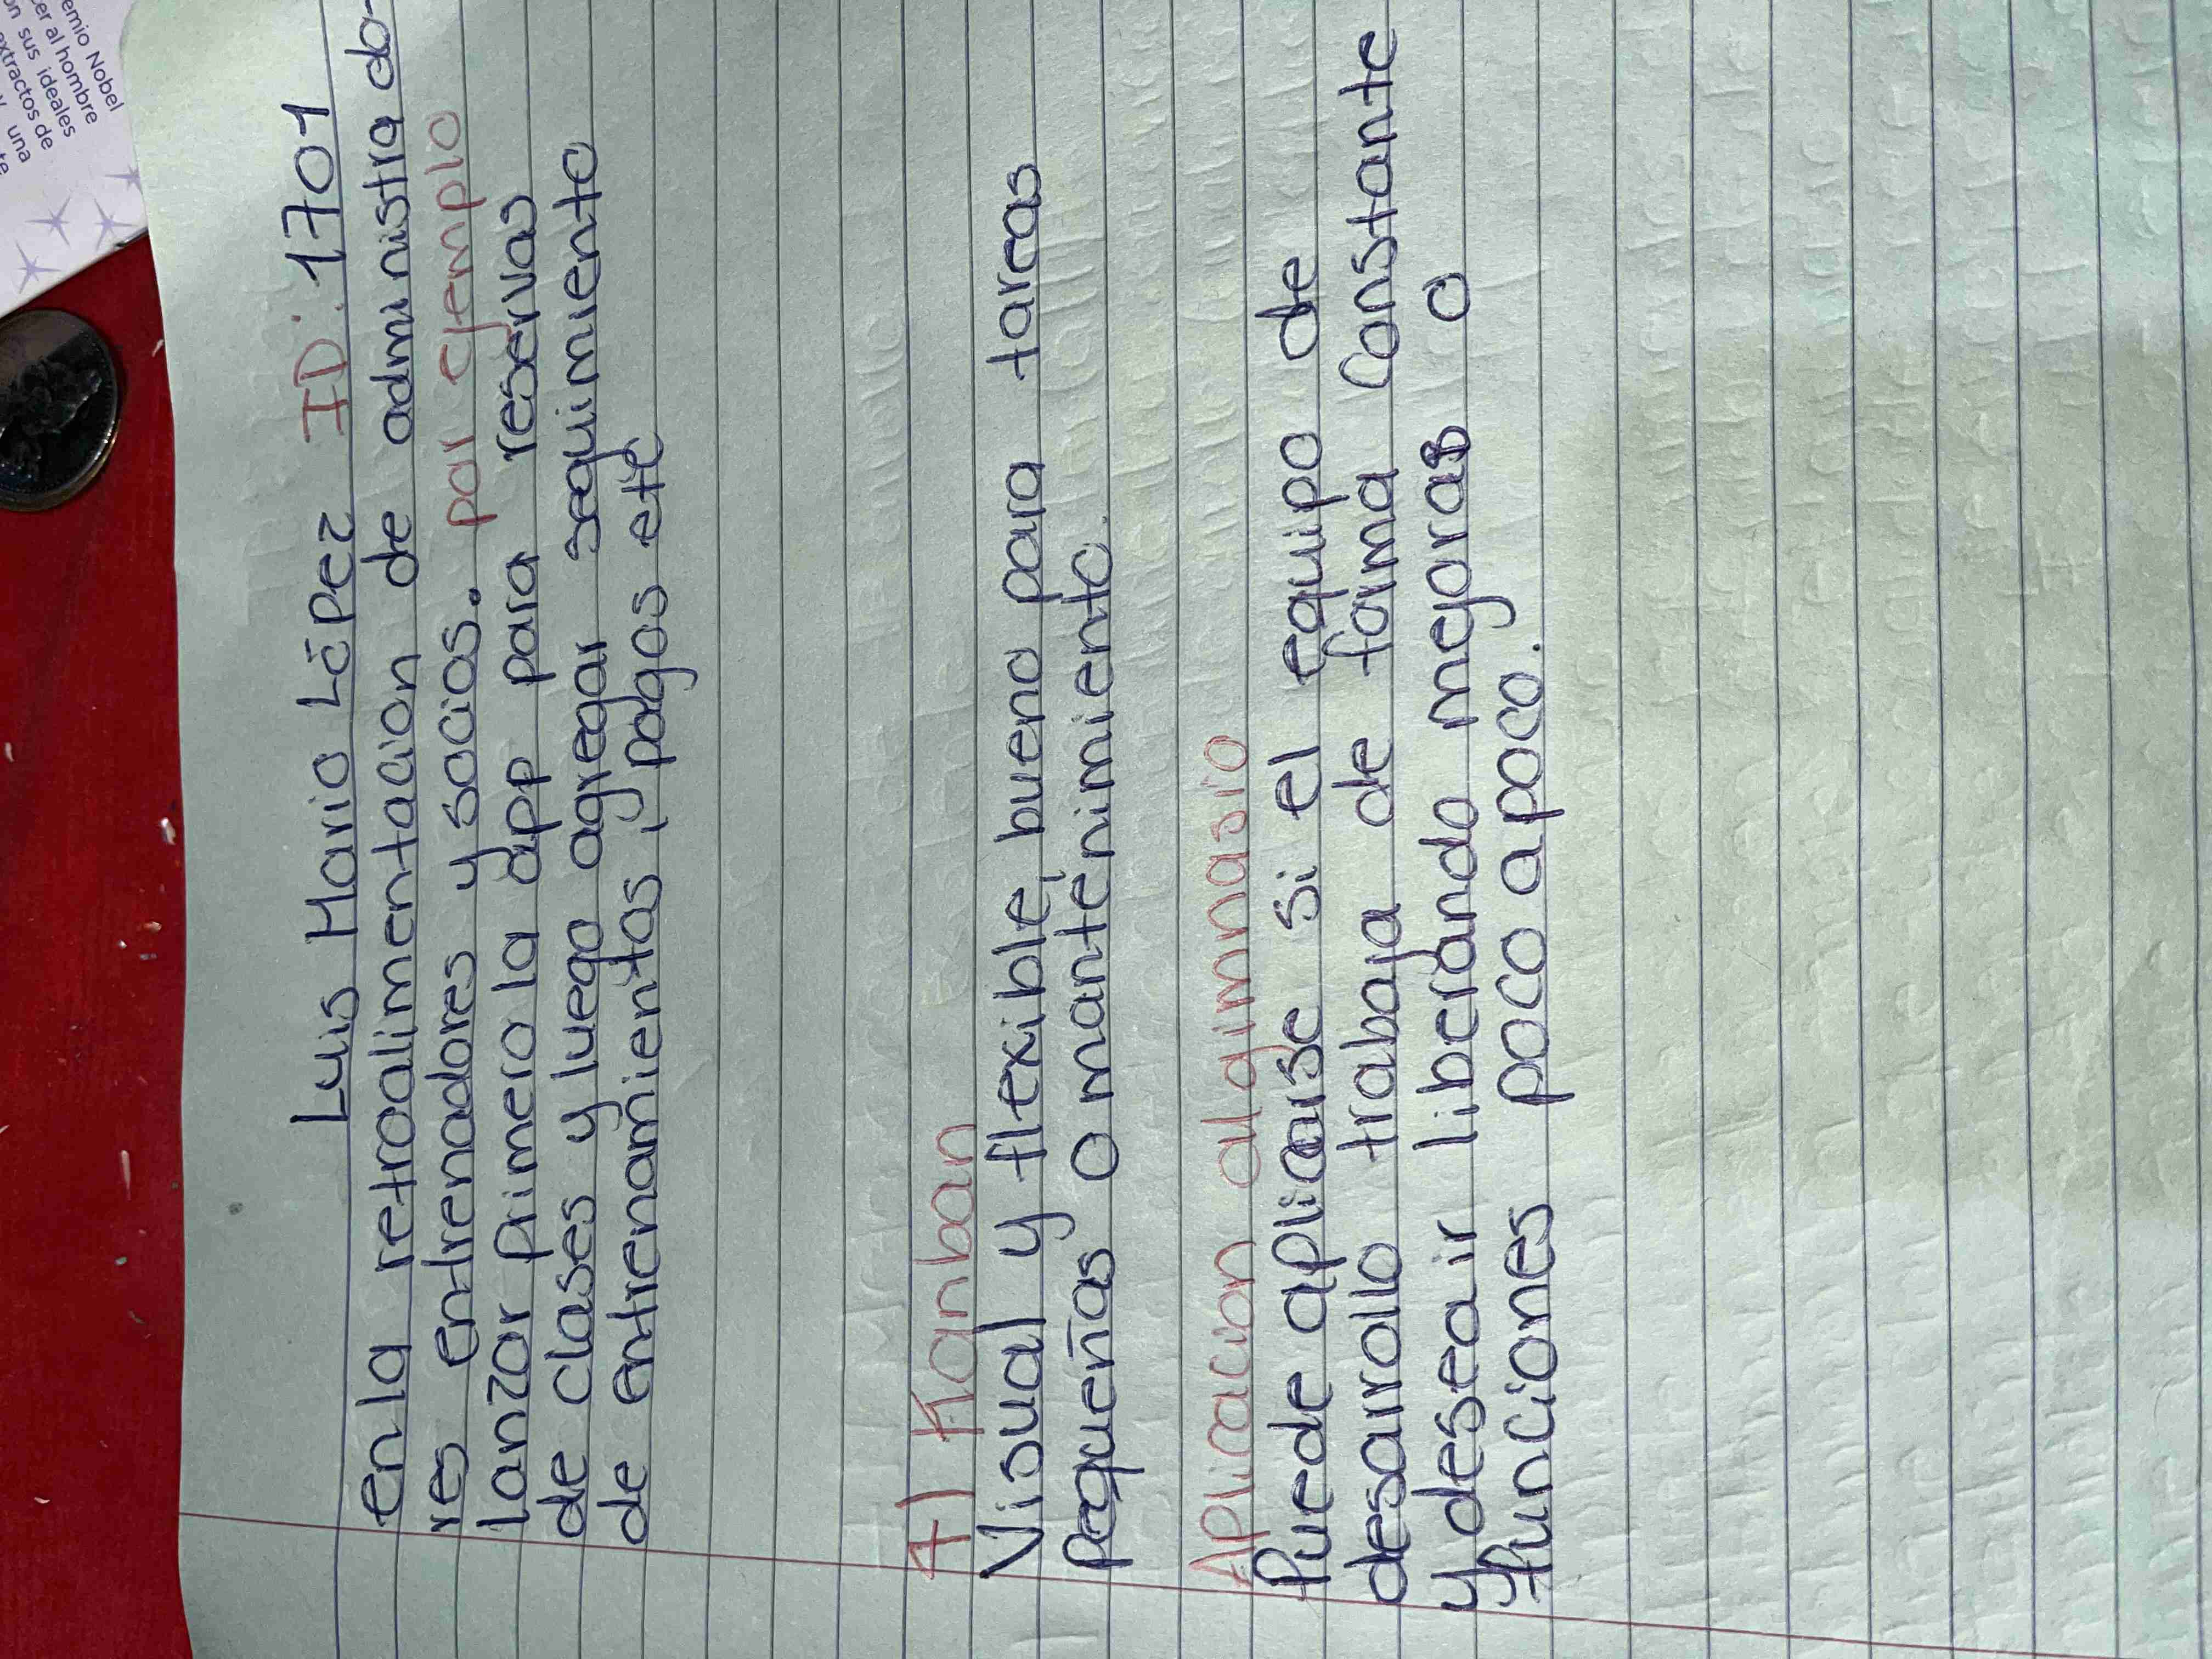 emio Nobel
er al hombre
n sus ideales
extractos de
y una
te
Luis Mario López ID: 1701
en la retroalimentacion de administrado-
res entrenadores y socios. por ejemplo
lanzar primero la app para reservas
de clases y luego agregar seguimiento
de entrenamientos, pagos etc
4) Kanban
Visual y flexible, bueno para tareas
pequeñas o mantenimiento.
Aplicacion al gimnasio
Puede aplicarse si el equipo de
desarrollo trabaja de forma constante
y desea ir liberando mejoras o
funciones poco a poco.